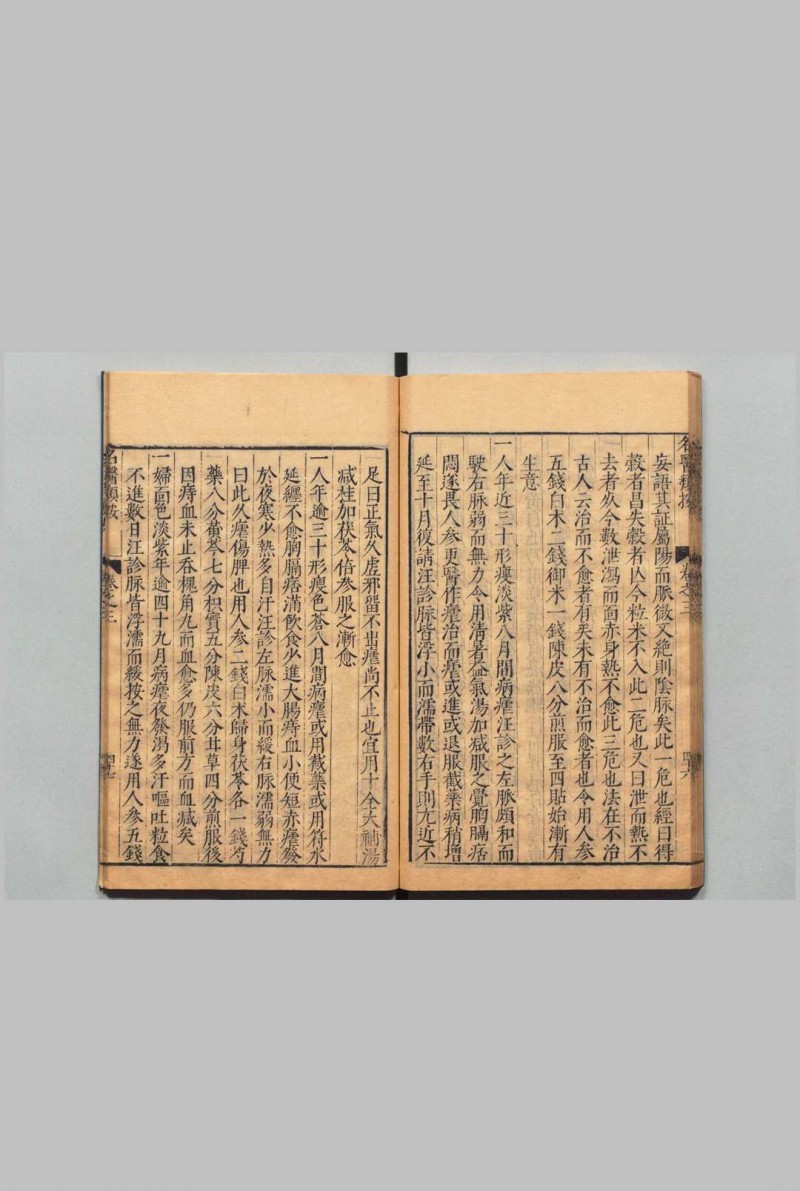 名醫類按
卷之三
四十六
妄語其証屬陽而脉微又絶則陰脉矣此一危也經曰得
穀者昌失穀者亾今粒米不入此二危也又曰泄而熱不
去者死今數泄瀉而面赤身熱不愈此三危也法在不治
古人云治而不愈者有矣未有不治而愈者也令用人参
五錢白朮二錢御米一錢陳皮八分煎服至四貼始漸有
生意
一人年近三十形瘦淡紫八月間病瘧汪診之左脈頗和而
駛右脉弱而無力令用清暑益氣湯加减服之覺胸膈痞
悶遂畏人参更醫作瘧治而瘧或進或退服截藥病稍增
延至十月復請汪診脉皆浮小而濡帶數右手則尤近不
足曰正氣久虚邪留不出瘧尚不止也宜用十全大補湯
减桂加茯苓倍参服之漸愈
一人年逾三十形瘦色蒼八月間病瘧或用截藥或用符水
延纏不愈胸膈痞滿飲食少進大腸痔血小便短赤瘧發
於夜寒少熱多自汗汪診左脉濡小而緩右脉濡弱無力
曰此久瘧傷脾也用人参二錢白朮歸身茯苓各一錢芍
藥八分黄芩七分枳實五分陳皮六分甘草四分煎服後
因痔血未止吞槐角丸而血愈多仍服前方而血减矣
一婦面色淡紫年逾四十九月病瘧夜發渴多汗嘔吐粒食
不進數日汪診脉皆浮濡而緩按之無力遂用人参五錢
名醫類按
卷之三
四十七